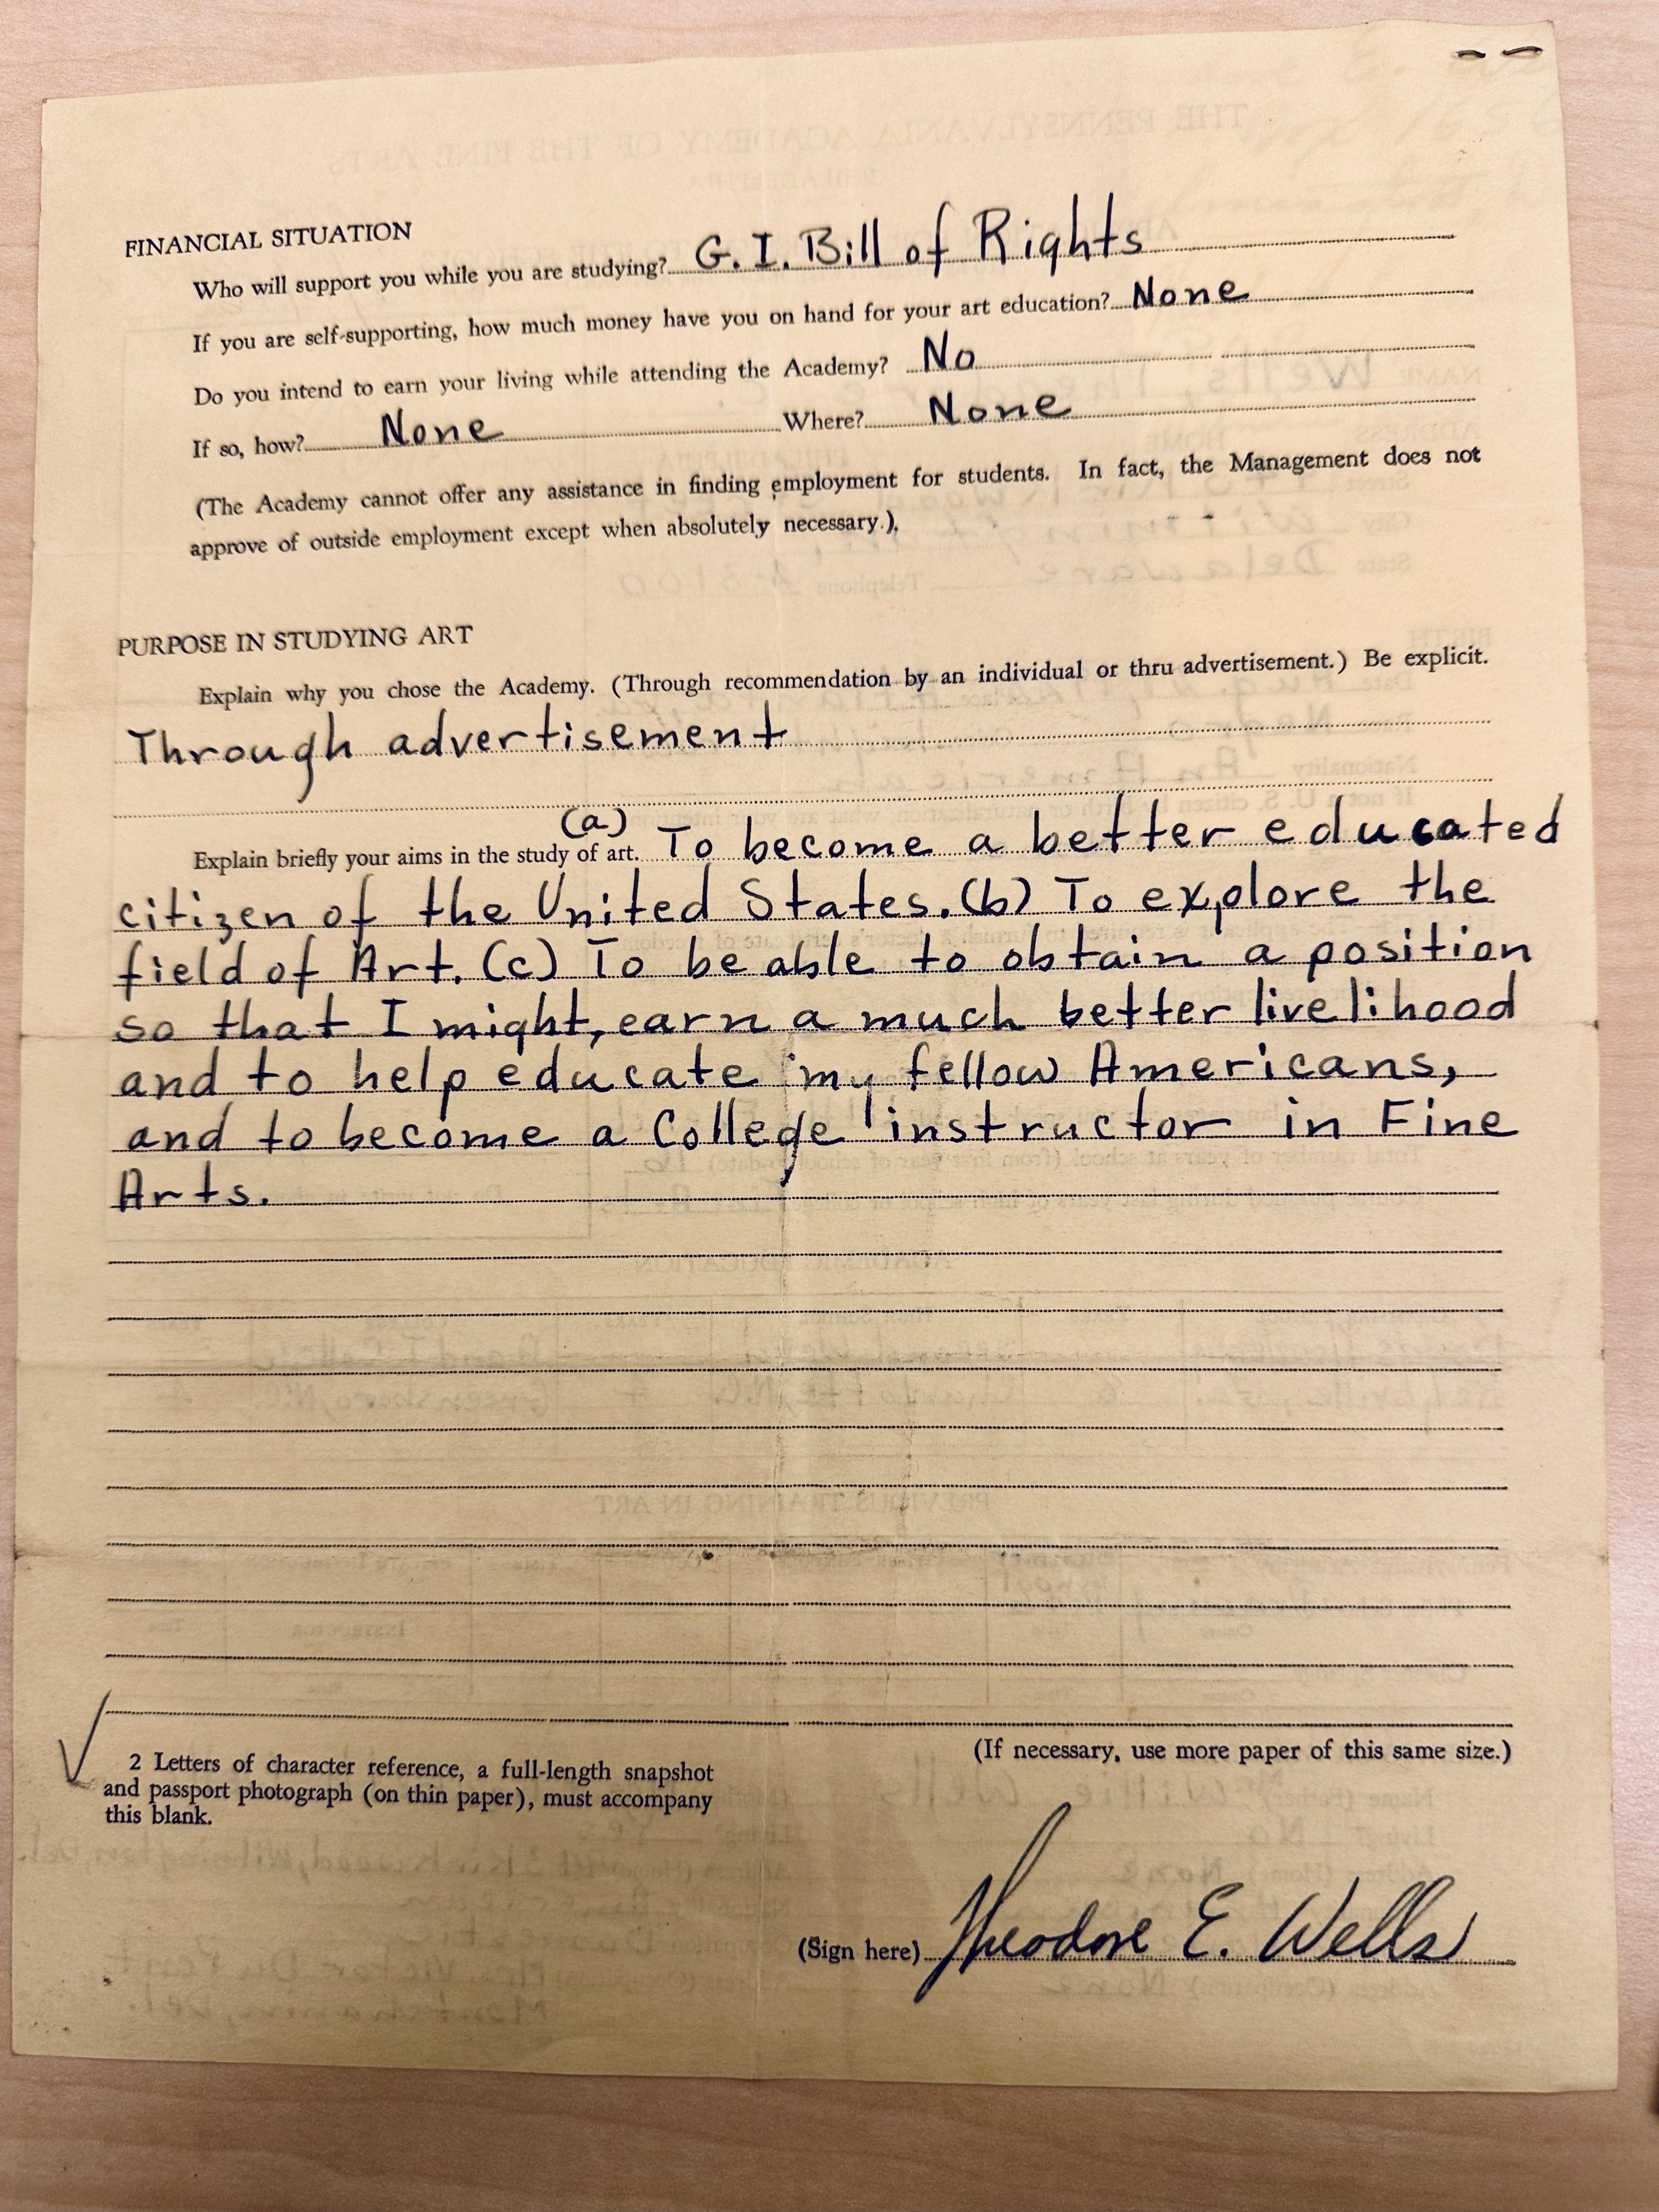 FINANCIAL SITUATION
Who will support you while you are studying? G. I. Bill of Rights
If you are self-supporting, how much money have you on hand for your art education? None
Do you intend to earn your living while attending the Academy? No
If so, how? None Where? None
(The Academy cannot offer any assistance in finding employment for students. In fact, the Management does not
approve of outside employment except when absolutely necessary.)
PURPOSE IN STUDYING ART
Explain why you chose the Academy. (Through recommendation by an individual or thru advertisement.) Be explicit.
Through advertisement
Explain briefly your aims in the study of art. (a) To become a better educated
citizen of the United States. (b) To explore the
field of Art. (c) To be able to obtain a position
so that I might, earn a much better livelihood
and to help educate my fellow Americans,
and to become a College instructor in Fine
Arts.
(If necessary, use more paper of this same size.)
2 Letters of character reference, a full-length snapshot
and passport photograph (on thin paper), must accompany
this blank.
(Sign here) Theodore E. Wells